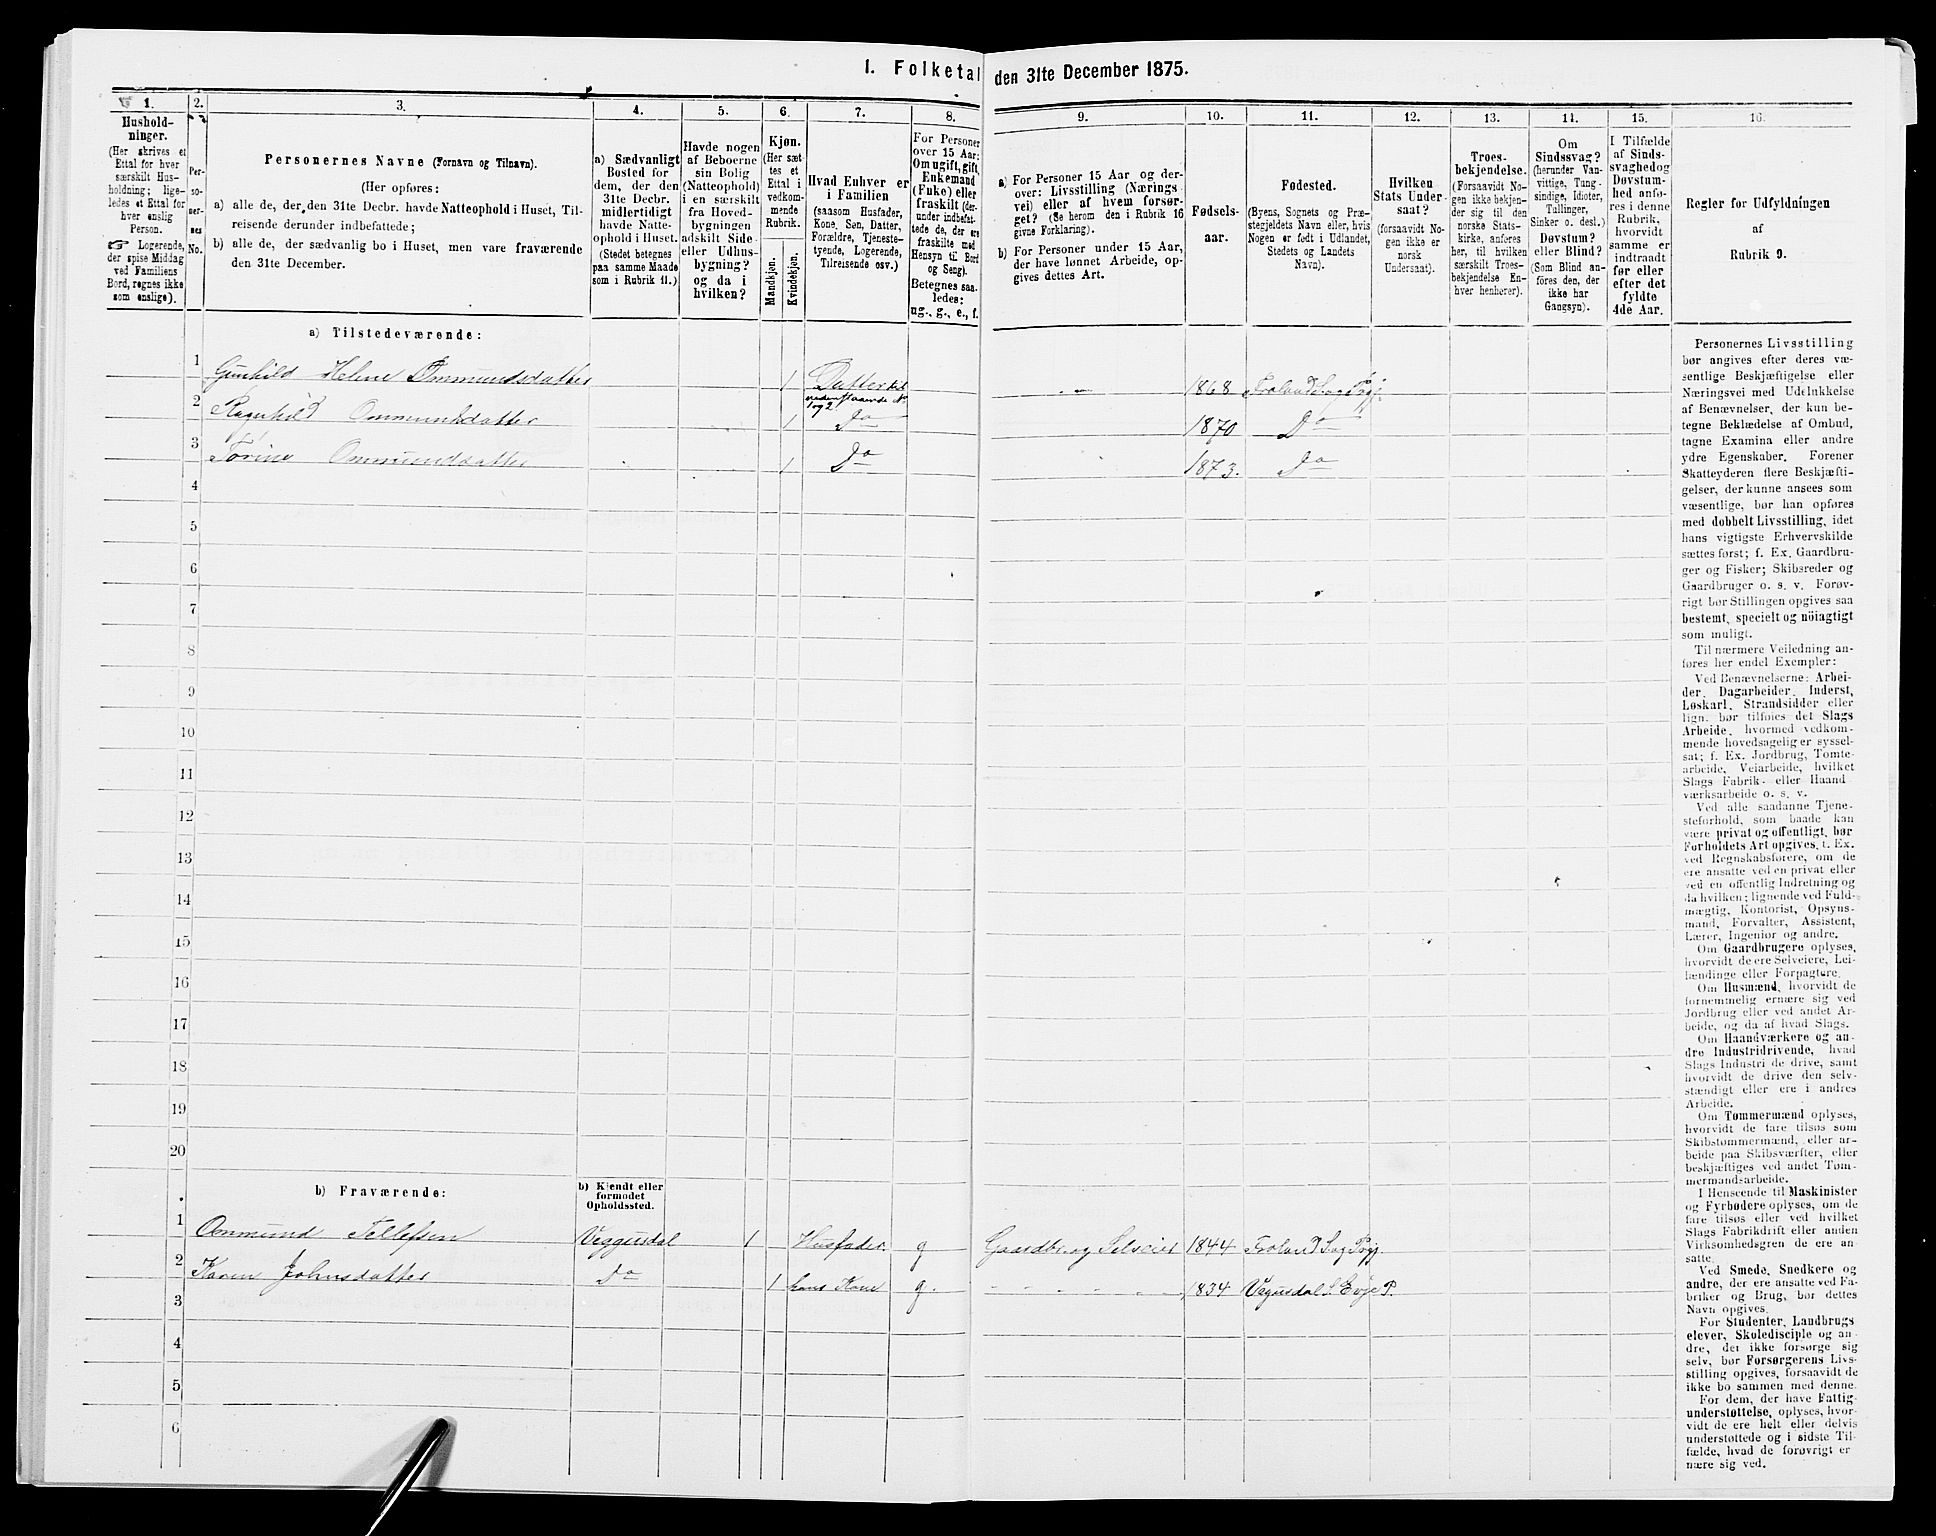 I. Folketal den 31te December 1875.
1.
Hushold-
ninger.
(Her skrives et
Ettal for hver
særskilt Hus-
holdning; lige-
ledes et Ettal for
hver enslig
Person.
☞ Logerende,
der spise Middag
ved Familiens
Bord, regnes ikke
som enslige).
2.
Per-
so-
ner-
nes
No.
3.
Personernes Navne (Fornavn og Tilnavn).
(Her opføres:
a) alle de, der den 31te Decbr. havde Natteophold i Huset, Til-
reisende derunder indbefattede;
b) alle de, der sædvanlig bo i Huset, men vare fraværende
den 31te December.
4.
a) Sædvanligt
Bosted for
dem, der den
31te Decbr.
midlertidigt
havde Natte-
ophold i Huset.
(Stedet betegnes
paa samme Maade
som i Rubrik 11.)
5.
Havde nogen
af Beboerne
sin Bolig
(Natteophold)
i en særskilt
fra Hoved-
bygningen
adskilt Side-
eller Udhus-
bygning?
og da i
hvilken?
6.
Kjøn.
(Her sæt-
tes et
Ettal i
vedkom-
mende
Rubrik.
Mandkjøn.
Kvindekjøn.
7.
Hvad Enhver er
i Familien
(saasom Husfader,
Kone, Søn, Datter,
Forældre, Tjeneste-
tyende, Logerende,
Tilreisende osv.)
8.
For Personer
over 15 Aar:
Om ugift, gift,
Enkemand
(Enke) eller
fraskilt (der-
under indbefat-
tede de, der ere
fraskilte med
Hensyn til Bord
og Seng).
Betegnes saa-
ledes:
ug., g., e., f.
9.
a) For Personer 15 Aar og der-
over: Livsstilling (Nærings-
vei) eller af hvem forsør-
get? (Se herom den i Rubrik 16
givne Forklaring).
b) For Personer under 15 Aar,
der have lønnet Arbeide, op-
gives dettes Art.
10.
Fødsels-
aar.
11.
Fødested.
(Byens, Sognets og Præ-
stegjeldets Navn eller, hvis
Nogen er født i Udlandet,
Stedets og Landets
Navn).
12.
Hvilken
Stats Under-
saat?
(forsaavidt No-
gen ikke er
norsk
Undersaat).
13.
Troes-
bekjendelse.
(Forsaavidt No-
gen ikke bekjen-
der sig til den
norske Stats-
kirke, anføres
her, til hvilken
særskilt Troes-
bekjendelse En-
hver henhører).
14.
Om
Sindssvag?
(herunder Van-
vittige, Tung-
sindige, Idioter,
Tullinger,
Sinker o. desl.)
Døvstum?
eller Blind?
(Som Blind an-
føres den, der
ikke har
Gangsyn).
15.
I Tilfælde
af Sinds-
svaghed og
Døvstum-
hed anfø-
res i denne
Rubrik,
hvorvidt
samme er
indtraadt
før eller
efter det
fyldte
4de Aar.
16.
Regler for Udfyldningen
af
Rubrik 9.
a) Tilstedeværende:
1 Gunhild Helene Ommundsdatter 1 Datter til nedenstaaende No 1 og 2 1868 Froland Sog Prgj.
2 Ragnhild Ommundsdatter 1 Do 1870 Do
3 Torine Ommundsdatter 1 Do 1873. Do
4
5
6
7
8
9
10
11
12
13
14
15
16
17
18
19
20
b) Fraværende:
b) Kjendt eller
formodet
Opholdssted.
1 Ommund Tellefsen Veggusdal 1 Husfader g Gaardbr. og Selveier 1844 Froland Sog Prgj.
2 Karen Johnsdatter Do 1 hans Kone g. 1834 Vegusdal S. Evje P.
3
4
5
6
Personernes Livsstilling
bør angives efter deres væ-
sentlige Beskjæftigelse eller
Næringsvei med Udelukkelse
af Benævnelser, der kun be-
tegne Beklædelse af Ombud,
tagne Examina eller andre
ydre Egenskaber. Forener
Skatteyderen flere Beskjæfti-
gelser, der kunne ansees som
væsentlige, bør han opføres
med dobbelt Livsstilling, idet
hans vigtigste Erhvervskilde
sættes først; f. Ex. Gaardbru-
ger og Fisker; Skibsreder og
Gaardbruger o. s. v. Forøv-
rigt bør Stillingen opgives saa
bestemt, specielt og nöiagtigt
som muligt.
Til nærmere Veiledning an-
føres her endel Exempler:
Ved Benævnelserne: Arbei-
der, Dagarbeider, Inderst,
Løskarl, Strandsidder eller
lign. bør tilføies det Slags
Arbeide, hvormed vedkom-
mende hovedsagelig er syssel-
sat; f. Ex. Jordbrug, Tomte-
arbeide, Veiarbeide, hvilket
Slags Fabrik- eller Haand
værksarbeide o. s. v.
Ved alle saadanne Tjene-
steforhold, som baade kan
være privat og offentligt, bør
Forholdets Art opgives, t. Ex.
ved Regnskabsførere, om de
ere ansatte ved en privat eller
ved en offentlig Indretning og
da hvilken; lignende ved Fuld-
mægtig, Kontorist, Opsyns-
mand, Forvalter, Assistent,
Lærer, Ingeniør og andre.
Om Gaardbrugere oplyses,
hvorvidt de ere Selveiere, Lei-
lændinge eller Forpagtere.
Om Husmænd, hvorvidt de
fornemmelig ernære sig ved
Jordbrug eller ved andet Ar-
beide, og da af hvad Slags.
Om Haandværkere og an-
dre Industridrivende, hvad
Slags Industri de drive, samt
hvorvidt de drive den selv-
stændigt eller ere i andres
Arbeide.
Om Tømmermænd oplyses,
hvorvidt de fare tilsøs som
Skibstømmermænd, eller ar-
beide paa Skibsværfter, eller
beskjæftiges ved andet Tøm-
mermandsarbeide.
I Henseende til Maskinister
og Fyrbødere oplyses, om de
fare tilsøs eller ved hvilket
Slags Fabrikdrift eller anden
Virksomhedsgren de ere an-
satte.
Ved Smede, Snedkere og
andre, der ere ansatte ved Fa-
briker og Brug, bør dettes
Navn opgives.
For Studenter, Landbrugs
elever, Skoledisciple og an-
dre, der ikke forsørge sig
selv, bør Forsørgerens Livs-
stilling opgives, forsaavidt de
ikke bo sammen med denne.
For dem, der have Fattig-
understøttelse, oplyses, hvor-
vidt de ere helt eller delvis
understøttede og i sidste Til-
fælde, hvad de forøvrigt er
nære sig ved.